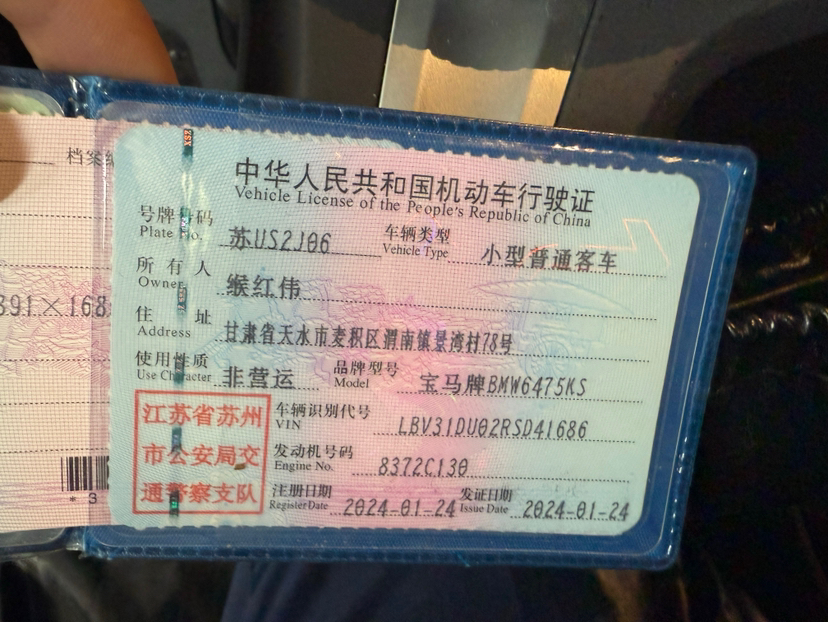 档案编
391×168
* 3
中华人民共和国机动车行驶证
Vehicle License of the People's Republic of China
号牌号码 苏US2J06 车辆类型 小型普通客车
Plate No. Vehicle Type
所有人 缑红伟
Owner
住址 甘肃省天水市麦积区渭南镇景湾村78号
Address
使用性质 非营运 品牌型号 宝马牌BMW6475KS
Use Character Model
江苏省苏州
市公安局交
通警察支队
车辆识别代号 LBV31DU02RSD41686
VIN
发动机号码 8372C130
Engine No.
注册日期 2024-01-24 发证日期 2024-01-24
Register Date Issue Date